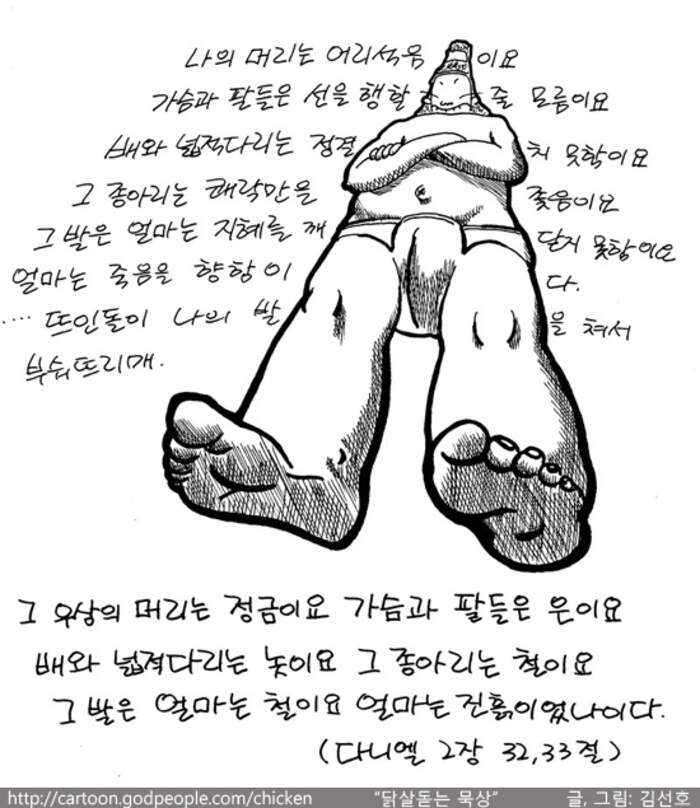 나의 머리는 어리석음이요
가슴과 팔들은 선을 행할 줄 모름이요
배와 넓적다리는 정결치 못함이요
그 종아리는 쾌락만을 좇음이요
그 발은 얼마는 지혜를 깨닫지 못함이요
얼마는 죽음을 향함이다.
···· 뜨인돌이 나의 발을 쳐서
부숴뜨리매.
그 우상의 머리는 정금이요 가슴과 팔들은 은이요
배와 넓적다리는 놋이요 그 종아리는 철이요
그 발은 얼마는 철이요 얼마는 진흙이었나이다.
(다니엘 2장 32,33절)
http://cartoon.godpeople.com/chicken "닭살돋는 묵상" 글, 그림: 김선호